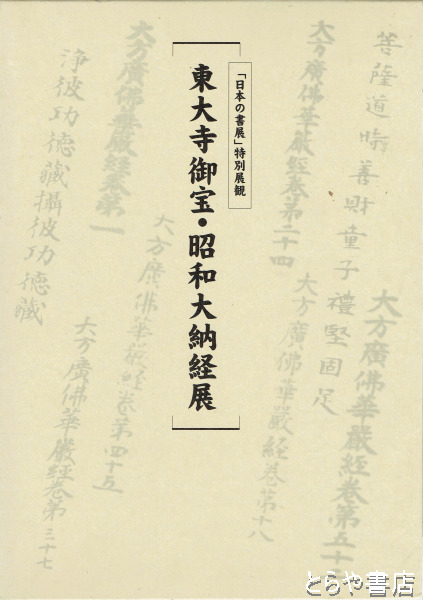 菩薩道時善財童子禮堅固足
大方廣佛華嚴經卷第五十
大方廣佛華嚴經卷第二十四
大方廣佛華嚴經卷第十八
「日本の書展」特別展観
東大寺御宝・昭和大納経展
大方廣佛華嚴經卷第一
大方廣佛華嚴經卷第四十五
淨彼功德藏攝彼功德藏
大方廣佛華嚴經卷第三十七
とらや書店